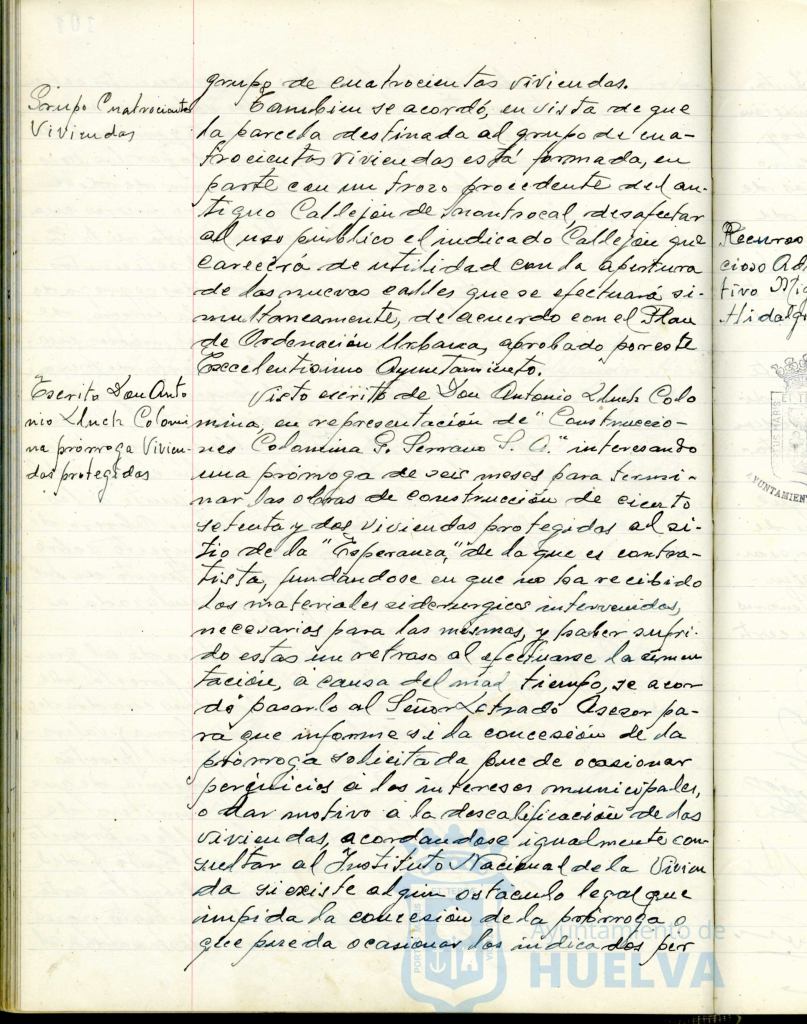 grupo de cuatrocientas viviendas.
Grupo Cuatrocientas
Viviendas
Tambien se acordó, en vista de que
la parcela destinada al grupo de cua-
trocientas viviendas está formada, en
parte con un trozo procedente del an-
tiguo Callejón de Montrocal, desafectar
al uso público el indicado Callejón que
carecerá de utilidad con la apertura
de las nuevas calles que se efectuará si-
multaneamente, de acuerdo con el Plan
de Ordenación Urbana, aprobado por este
Excelentisimo Ayuntamiento.
Escrito Don Anto
nio Lluch Colomi
na prórroga Vivien-
das protegidas
Visto escrito de Don Antonio Lluch Colo
mina, en representación de "Construccio-
nes Colomina G. Serrano S. A." interesando
una prórroga de seis meses para termi-
nar las obras de construcción de ciento
setenta y dos viviendas protegidas al si-
tio de la "Esperanza," de la que es contra-
tista, fundándose en que no ha recibido
los materiales siderurgicos intervenidos,
necesarios para las mismas, y haber sufri-
do estas un retraso al efectuarse la cimen
tación, a causa del mal tiempo, se acor
dó pasarlo al Señor Letrado Asesor pa-
ra que informe si la concesión de la
prórroga solicitada puede ocasionar
perjuicios á los intereses municipales,
o dar motivo á la descalificación de las
viviendas, acordandose igualmente con
sultar al Instituto Nacional de la Vivien
da si existe algun ostaculo legal que
impida la concesión de la prórroga o
que pueda ocasionar los indicados per
Recurso
cioso Ad
tivo Mig
Hidalg
AYUNTAMIEN
Ayuntamiento de
HUELVA